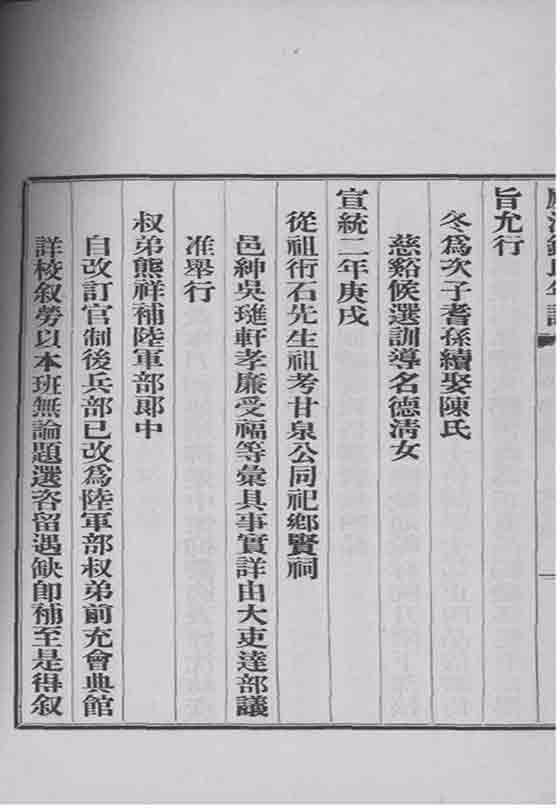 旨允行
冬爲次子耆孫續娶陳氏
慈谿候選訓導名德淸女
宣統二年庚戌
從祖術石先生祖考甘泉公同祀鄕賢祠
邑紳吳璡軒孝廉受福等彙具事實詳由大吏達部議
准舉行
叔弟熊祥補陸軍部郞中
自改訂官制後兵部已改爲陸軍部叔弟前充會典館
詳校叙勞以本班無論題選咨留遇缺卽補至是得叙